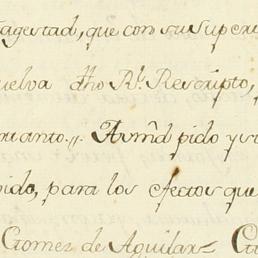 agestad, que con su Superi
uelva dho Rl. Rescripto,
cuanto.,, A vmd pido y s
pido, para los efectos que
Gomez de Aguilar =